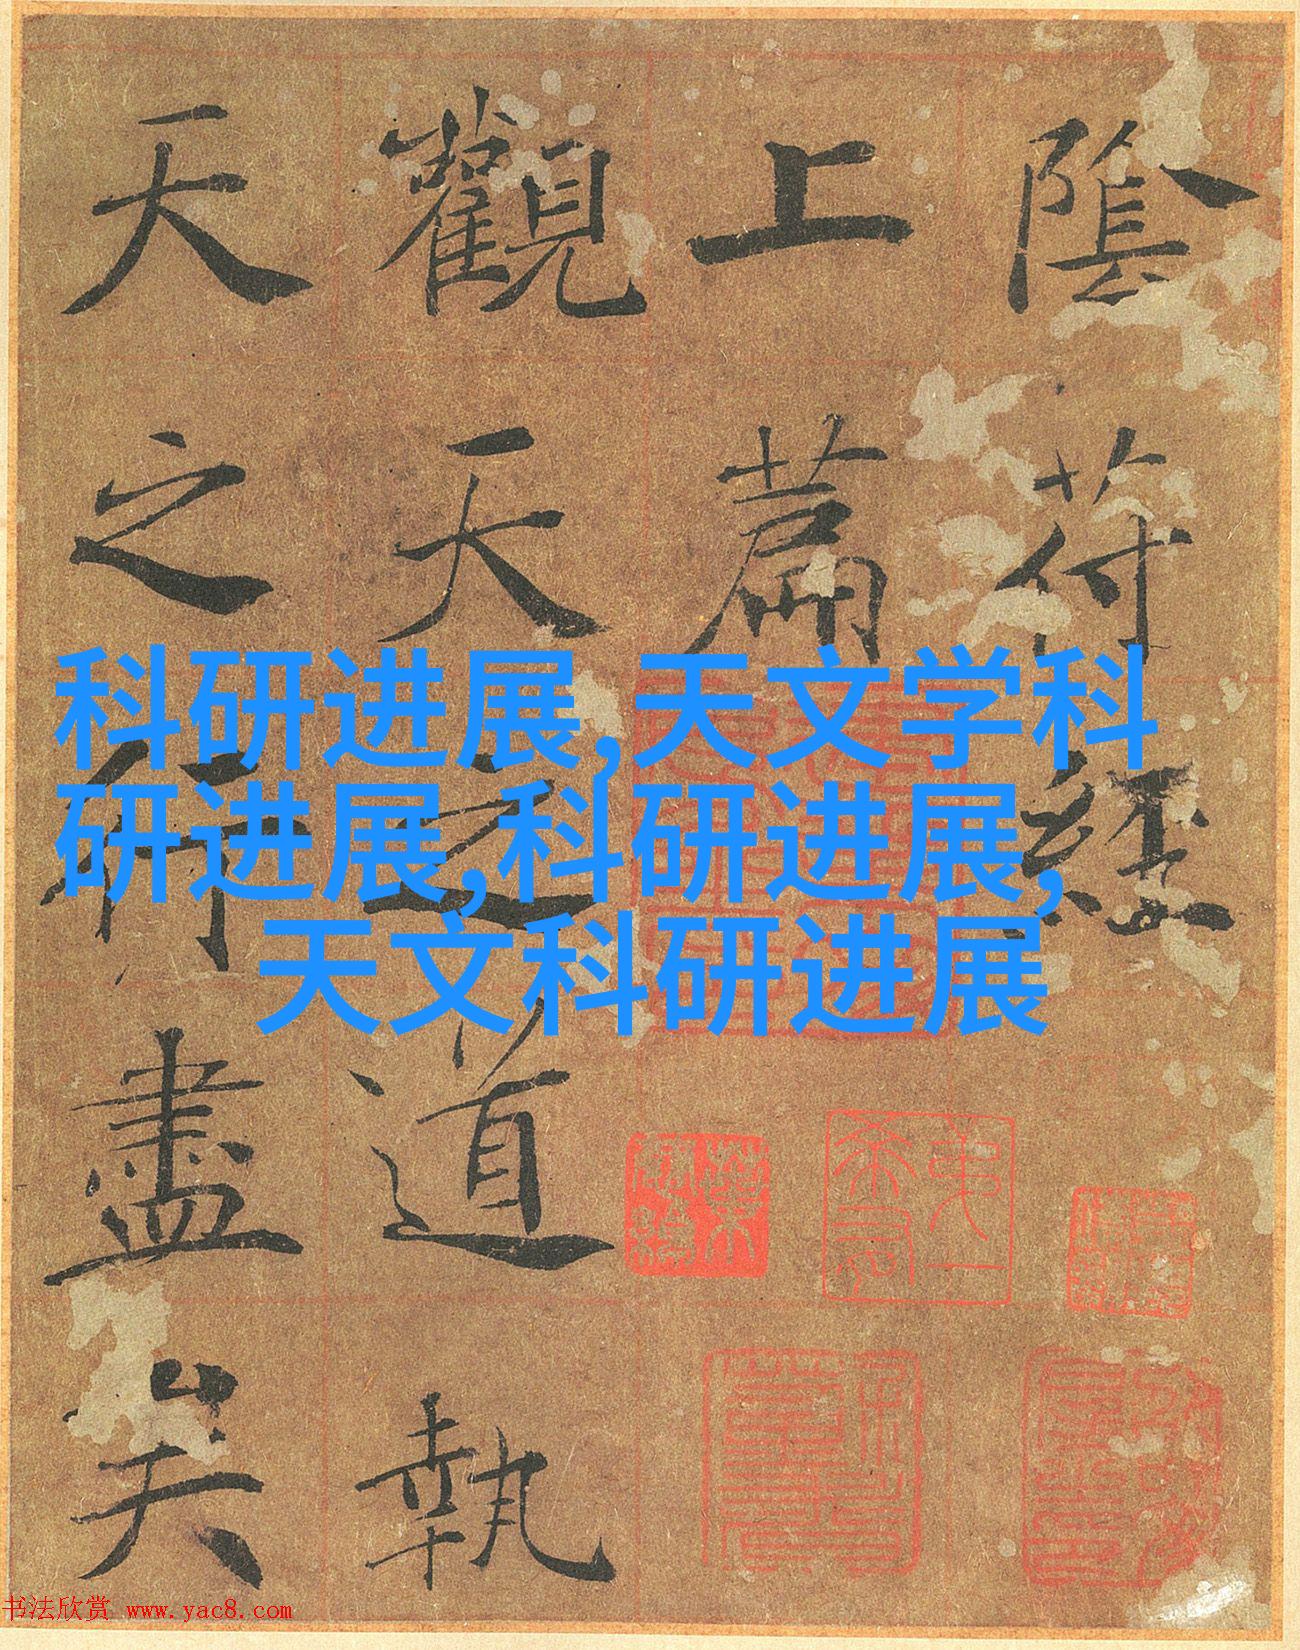 陰符經
上篇
觀天之道執
天之行盡矣
科研进展,天文学科
研进展,科研进展,
天文科研进展
书法欣赏 www.yac8.com